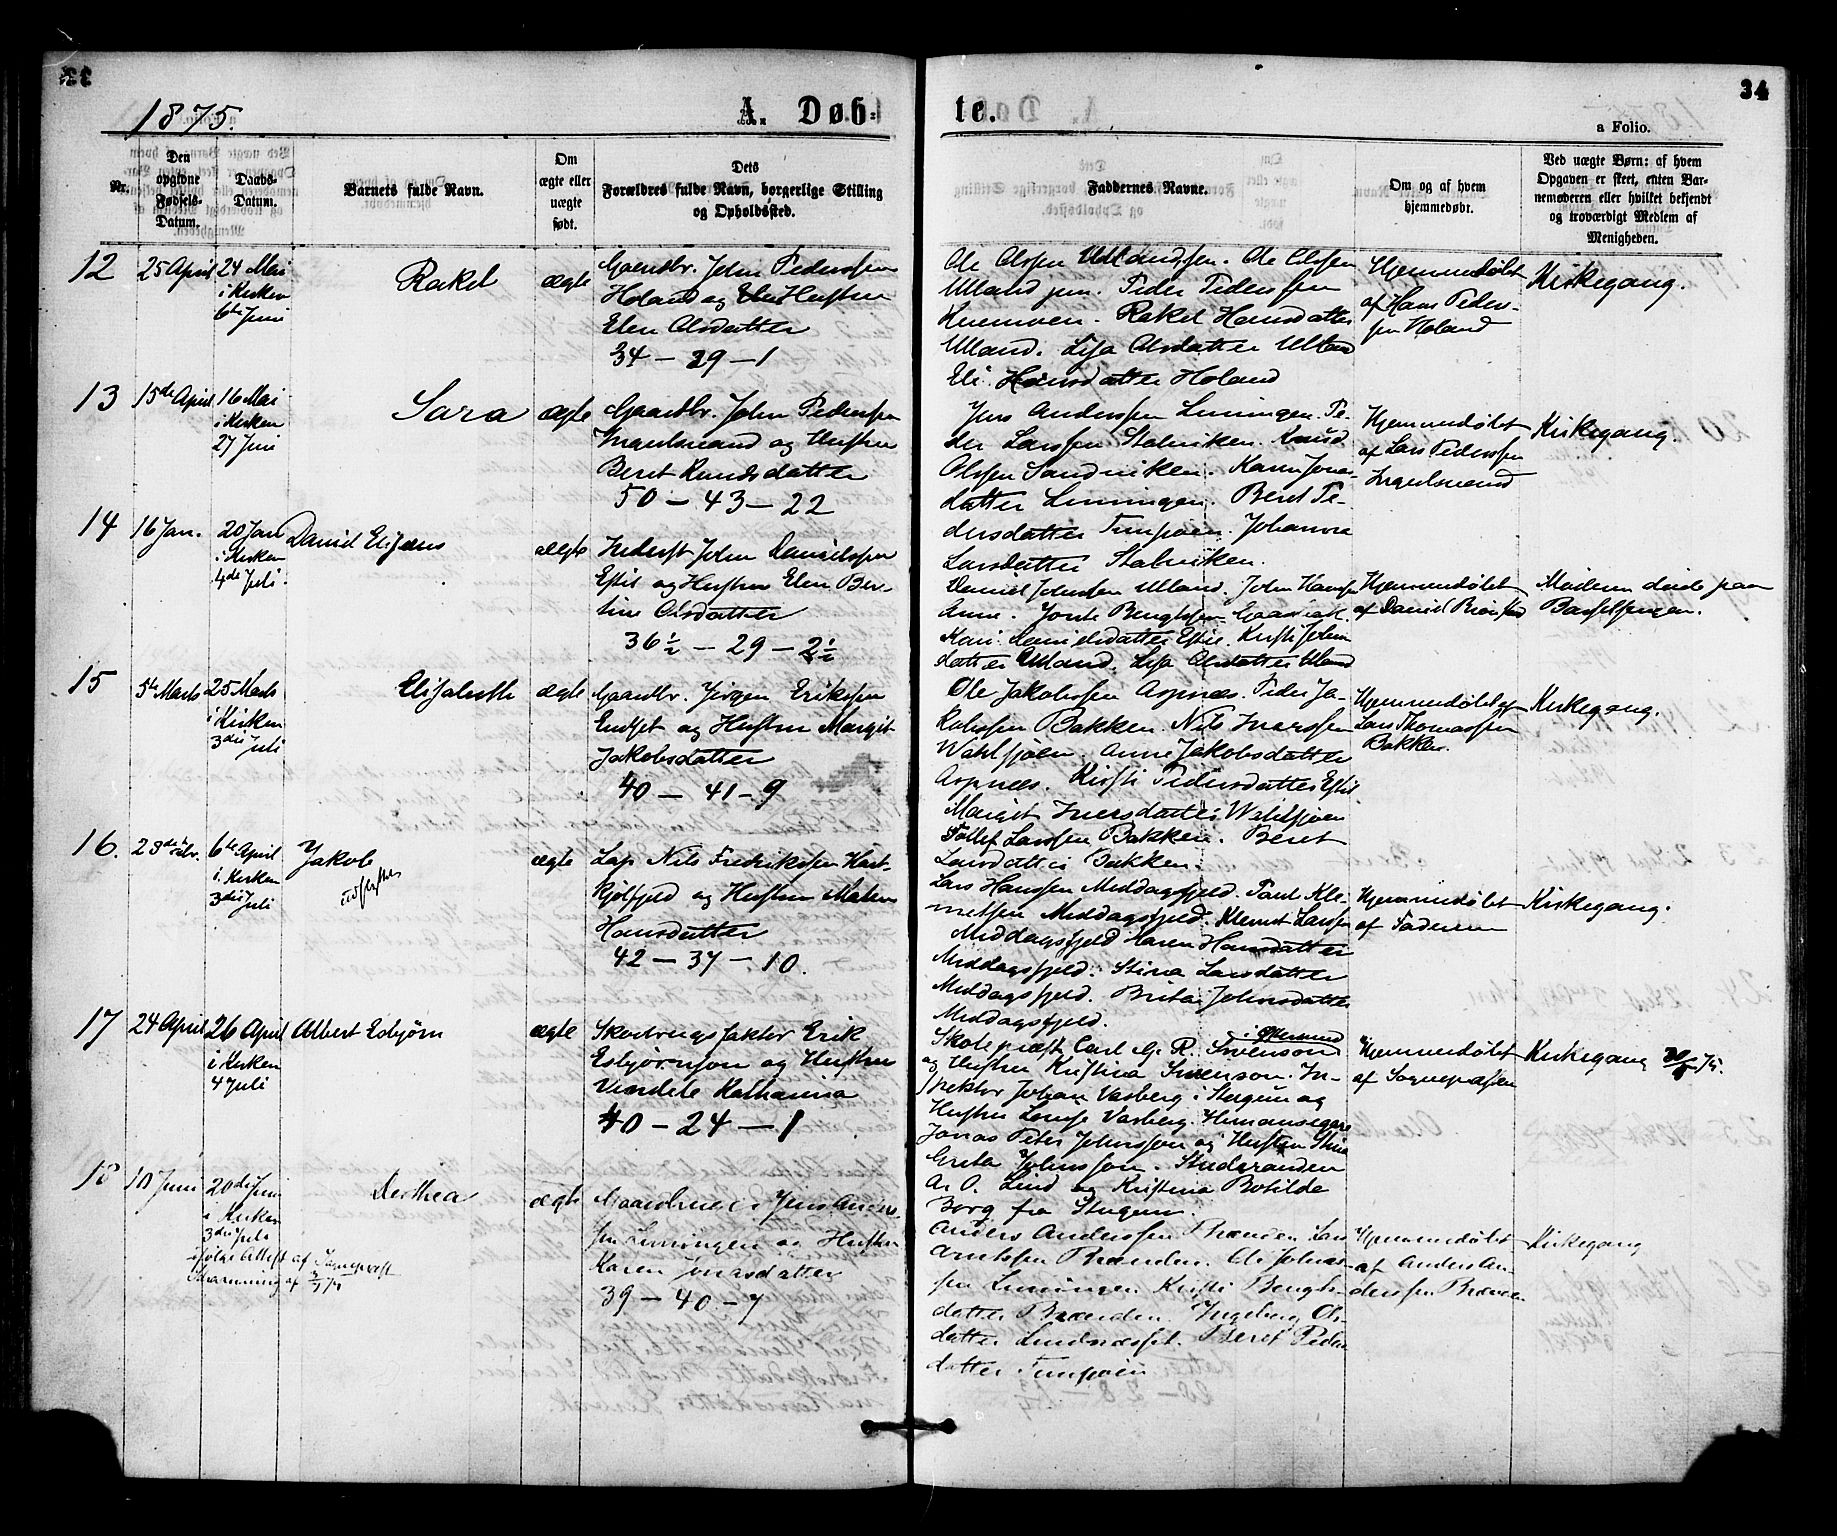 34
1875.
A. Døb-
te.
a Folio.
Nr.
Den
opgivne
Fødsels-
Datum.
Daabs-
Datum.
Barnets fulde Navn.
Om
ægte eller
uægte
født.
Dets
Forældres fulde Navn, borgerlige Stilling
og Opholdssted.
Faddernes Navne.
Om og af hvem
hjemmedøbt.
Ved uægte Børn: af hvem
Opgaven er skeet, enten Bar-
nemoderen eller hvilket bekjendt
og troværdigt Medlem af
Menigheden.
12
25 April
24 Mai
i Kirken
6te Juni
Rakel
ægte
Gaardbr. John Pederssen
Holand og Hustru
Elen Olsdatter
34 - 29 - 1
Ole Olssen Ulland sen. Ole Olssen
Ulland jun. Peder Pederssen
Rakel Hansdatter
Ulland. Lisa Olsdatter Ulland
Eli Hansdatter Holand
Hjemmedøbt
af Hans Peders-
sen Holand
Kirkegang.
13
15de April
16 Mai
i Kirken
27 Juni
Sara
ægte
Gaardbr. John Pederssen
Ingulsvand og Hustru
Beret Knudsdatter
50 - 43 - 22
Jens Anderssen Lenningen. Pe-
der Larssen Stalviken. Knud
Olssen Sandviken. Karen Jonas-
datter Lenningen. Beret Pe-
dersdatter Tunsjøen. Johanna
Larsdatter Stalviken.
Hjemmedøbt
af Lars Pederssen
Ingulsvand
Kirkegang.
14
16 Jan.
20 Jan
i Kirken
4de Juli.
Daniel Elisæus
ægte
Inderst John Danielssen
Estil og Hustru Elen Ber-
tine Olsdatter
36½ - 29 - 2½
Daniel Johnssen Ulland. John Hanssen
Aune. Jonte Bengtssen
Kari Danielsdatter Estil. Kirsti John
datter Ulland. Lisa Olsdatter Ulland
Hjemmedøbt
af Daniel
Moderen døde paa
Barselsengen.
15
5te Marts
25 Marts
i Kirken
3die Juli
Elisabeth
ægte
Gaardbr. Jörgen Erikssen
Eidset og Hustru Margit
Jakobsdatter
40 - 41 - 9
Ole Jakobssen Aspnæs. Peder Ja-
kobssen Bakken. Nils Iverssen
Wahlsjøen. Anne Jakobsdatter
Aspnæs. Kirsti Pedersdatter Estil
Margit Iversdatter Wahlsjøen
Tollef Larssen Bakken. Beret
Larsdatter Bakken.
Hjemmedøbt af
Lars Thomassen
Bakken.
Kirkegang.
16.
23de Febr.
6te April
i Kirken
3die Juli
Jakob
udflyttet
ægte
Lap Nils Fredrikssen Hart-
kjölfjeld og Hustru Malen
Hansdatter
42 - 37 - 10.
Lars Hanssen Middagsfjeld. Paul Kle-
metsen Middagsfjeld. Klemet Larssen
Middagsfjeld Karen Hansdatter
Middagsfjeld. Stina Larsdatter
Middagsfjeld. Brita Johnsdatter
Middagsfjeld.
Hjemmedøbt
af Faderen
Kirkegang.
17
24 April
26 April
i Kirken
4 Juli
Albert Esbjörn
ægte
Skovbrugsfaktor Erik
Esbjörnson og Hustru
Vendela Katharina
40 - 24 - 1
Skolepræst Carl G. R. Svenson
og Hustru Kristina Svenson. In-
spektor Johan Varberg i Stugun og
Hustru Lovise Varberg. Hemansegare
Jonas Peter Johnsson og Hustru Stina
Greta Johnsson. Studeranden
A. O. Lind og Kristina Botilde
Borg fra Stugun.
Hjemmedøbt
af Sognepræsten
Kirkegang 30/5 75.
18
10 Juni
20de Juni
i Kirken
3die Juli
ifølge Attest af Sognepræst
Dorthea
ægte
Gaardbruger Jens Anders-
sen Lenningen og Hustru
Karen Jonasdatter
39 - 40 - 7
Anders Anderssen Brænden Lars
Arntssen Brænden. Ole Johnas-
sen Lenningen Kirsti Bengts-
datter Brænden. Ingeborg Ols-
datter Lundnæsset. Beret Peder
datter Tunsjøen
Hjemmedøbt
af Anders An-
derssen Brænden
Kirkegang